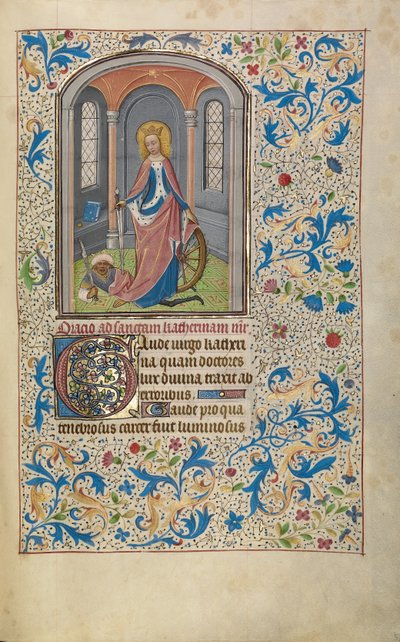 Oracio ad sanctam katherinam vir
Gaude virgo katheri
na quam doctores
lux divina traxit ab
erroribus. Gaude pro qua
tenebrosus carcer fiut luminosus